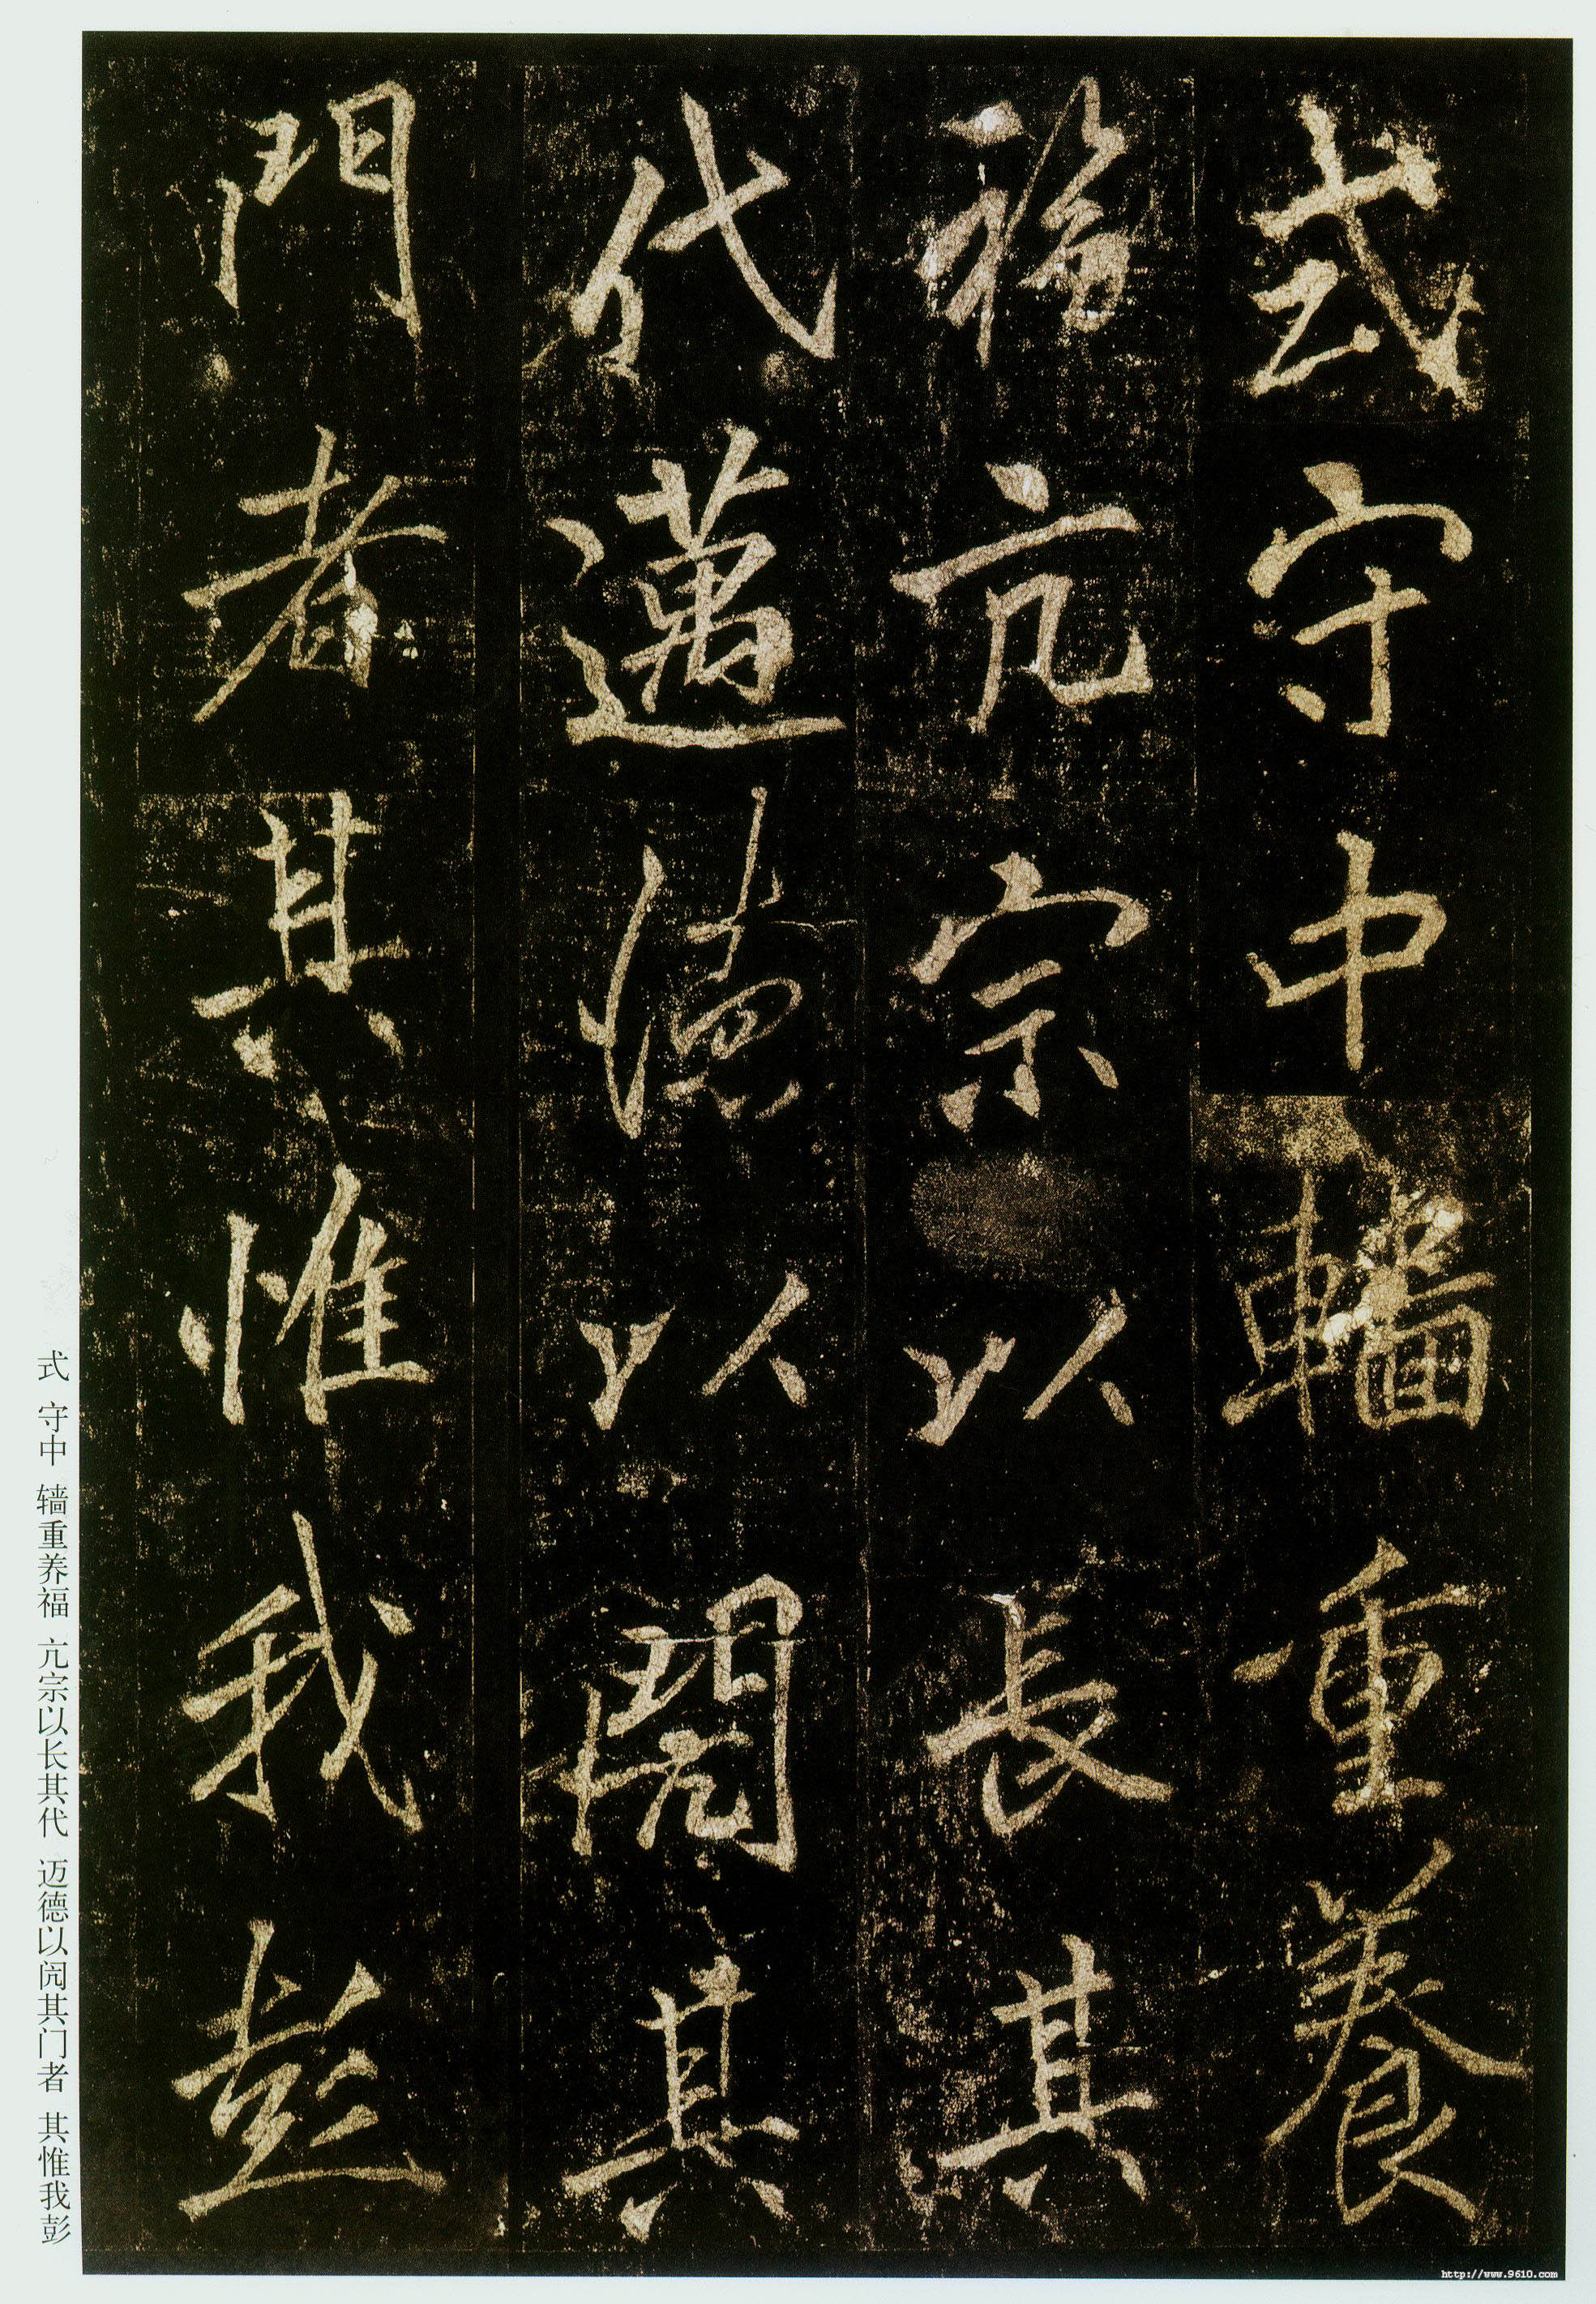 式守中轖重養
福亢宗以長其
代邁德以閌其
門者其惟我彭
式 守中 轖重养福 亢宗以长其代 迈德以闶其门者 其惟我彭
http://www.9610.com